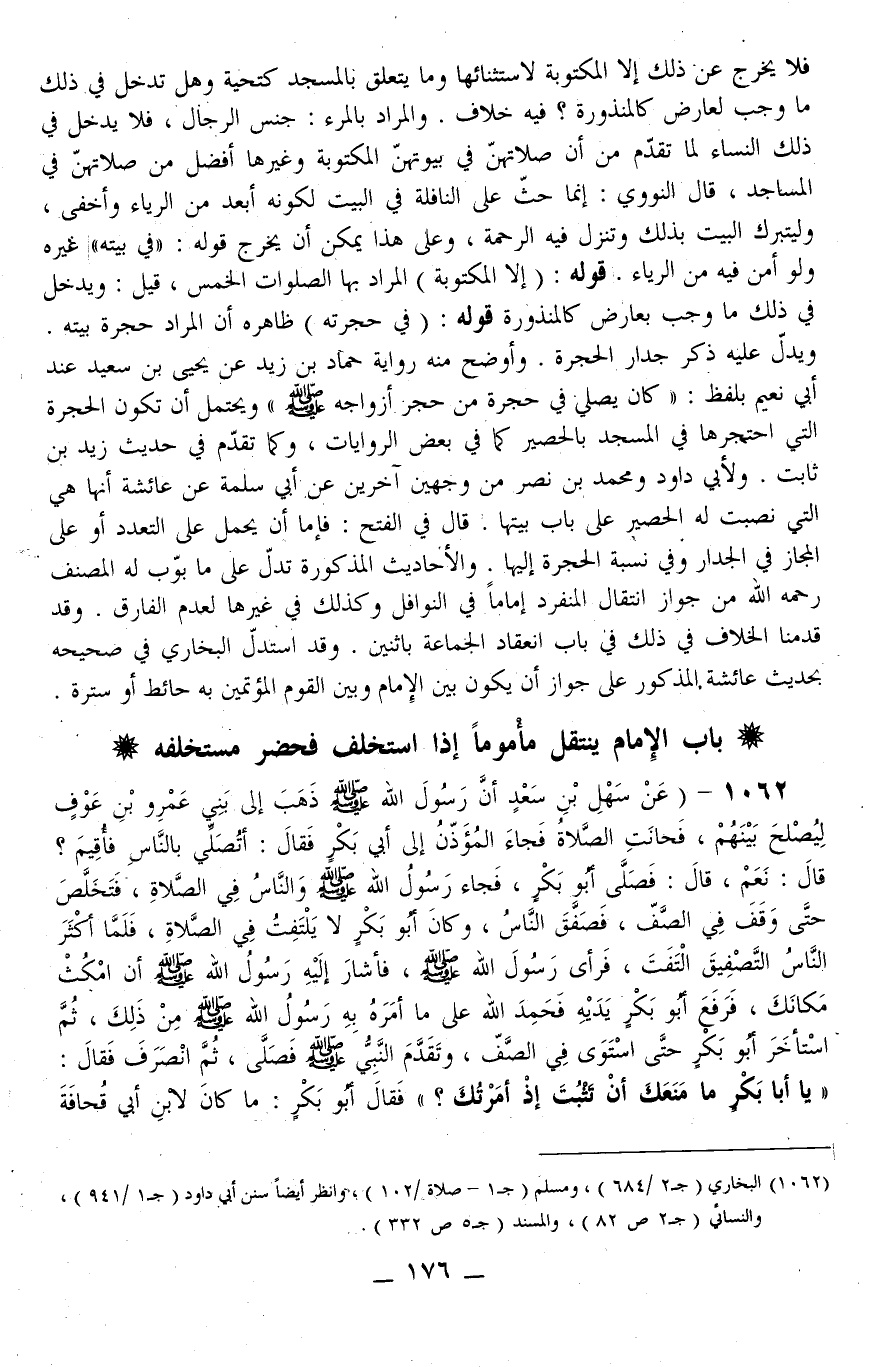 فلا يخرج عن ذلك إلا المكتوبة لاستثنائها وما يتعلق بالمسجد كتحية وهل تدخل في ذلك
ما وجب لعارض كالمنذورة ؟ فيه خلاف . والمراد بالمرء : جنس الرجال ، فلا يدخل في
ذلك النساء لما تقدّم من أن صلاتهنّ في بيوتهنّ المكتوبة وغيرها أفضل من صلاتهنّ في
المساجد ، قال النووي : إنما حثّ على النافلة في البيت لكونه أبعد من الرياء وأخفى ،
وليتبرك البيت بذلك وتنزل فيه الرحمة ، وعلى هذا يمكن أن يخرج قوله : «في بيته» غيره
ولو أمن فيه من الرياء . قوله : ( إلا المكتوبة ) المراد بها الصلوات الخمس ، قيل : ويدخل
في ذلك ما وجب بعارض كالمنذورة قوله : ( في حجرته ) ظاهره أن المراد حجرة بيته .
ويدلّ عليه ذكر جدار الحجرة . وأوضح منه رواية حماد بن زيد عن يحيى بن سعيد عند
أبي نعيم بلفظ : « كان يصلي في حجرة من حجر أزواجه ﷺ » ويحتمل أن تكون الحجرة
التي احتجرها في المسجد بالحصير كما في بعض الروايات ، وكما تقدّم في حديث زيد بن
ثابت . ولأبي داود ومحمد بن نصر من وجهين آخرين عن أبي سلمة عن عائشة أنها هي
التي نصبت له الحصير على باب بيتها . قال في الفتح : فإما أن يحمل على التعدد أو على
المجاز في الجدار وفي نسبة الحجرة إليها . والأحاديث المذكورة تدلّ على ما بوّب له المصنف
رحمه الله من جواز انتقال المنفرد إماماً في النوافل وكذلك في غيرها لعدم الفارق . وقد
قدمنا الخلاف في ذلك في باب انعقاد الجماعة باثنين . وقد استدلّ البخاري في صحيحه
بحديث عائشة المذكور على جواز أن يكون بين الإمام وبين القوم المؤتمين به حائط أو سترة .
باب الإمام ينتقل مأموماً إذا استخلف فحضر مستخلفه
١٠٦٢ - ( عَنْ سَهْلِ بْنِ سَعْدٍ أنَّ رَسُولَ الله ﷺ ذَهَبَ إلى بَنِي عَمْرِو بْنِ عَوْفٍ
لِيُصْلِحَ بَيْنَهُمْ ، فَحانَتِ الصَّلاةُ فَجاءَ المُؤَذّنُ إلى أبي بَكْرٍ فَقالَ : أتُصَلِّي بالنَّاسِ فأُقِيمَ ؟
قالَ : نَعَمْ ، قالَ : فَصَلَّى أبُو بَكْرٍ ، فَجاء رَسُولُ الله ﷺ وَالنَّاسُ فِي الصَّلاةِ ، فَتَخَلَّصَ
حتَّى وَقَفَ فِي الصَّفّ ، فَصَفَّقَ النَّاسُ ، وكانَ أبُو بَكْرٍ لا يَلْتَفِتُ فِي الصَّلاةِ ، فَلَمَّا أكْثَرَ
النَّاسُ التَّصْفِيقَ الْتَفَتَ ، فَرأى رَسُولَ الله ﷺ ، فأشارَ إلَيْهِ رَسُولُ الله ﷺ أن امْكُثْ
مَكانَكَ ، فَرَفَعَ أبُو بَكْرٍ يَدَيْهِ فَحَمِدَ الله على ما أمَرَهُ بِهِ رَسُولُ الله ﷺ مِنْ ذَلِكَ ، ثُمَّ
اسْتأخَرَ أبُو بَكْرٍ حتَّى اسْتَوَى فِي الصَّفّ ، وتَقَدَّمَ النَّبِيُّ ﷺ فَصَلَّى ، ثُمَّ انْصَرَفَ فَقالَ :
« يا أبا بَكْرٍ ما مَنَعَكَ أنْ تَثْبُتَ إذْ أمَرْتُكَ ؟ » فَقالَ أبُو بَكْرٍ : ما كانَ لابنِ أبي قُحافَةَ
(١٠٦٢) البخاري ( جـ٢ /٦٨٤ ) ، ومسلم ( جـ١ - صلاة /١٠٢ ) ، وانظر أيضاً سنن أبي داود ( جـ١ /٩٤١ ) ،
والنسائي ( جـ٢ ص ٨٢ ) ، والمسند ( جـ٥ ص ٣٣٢ ) .
— ١٧٦ —